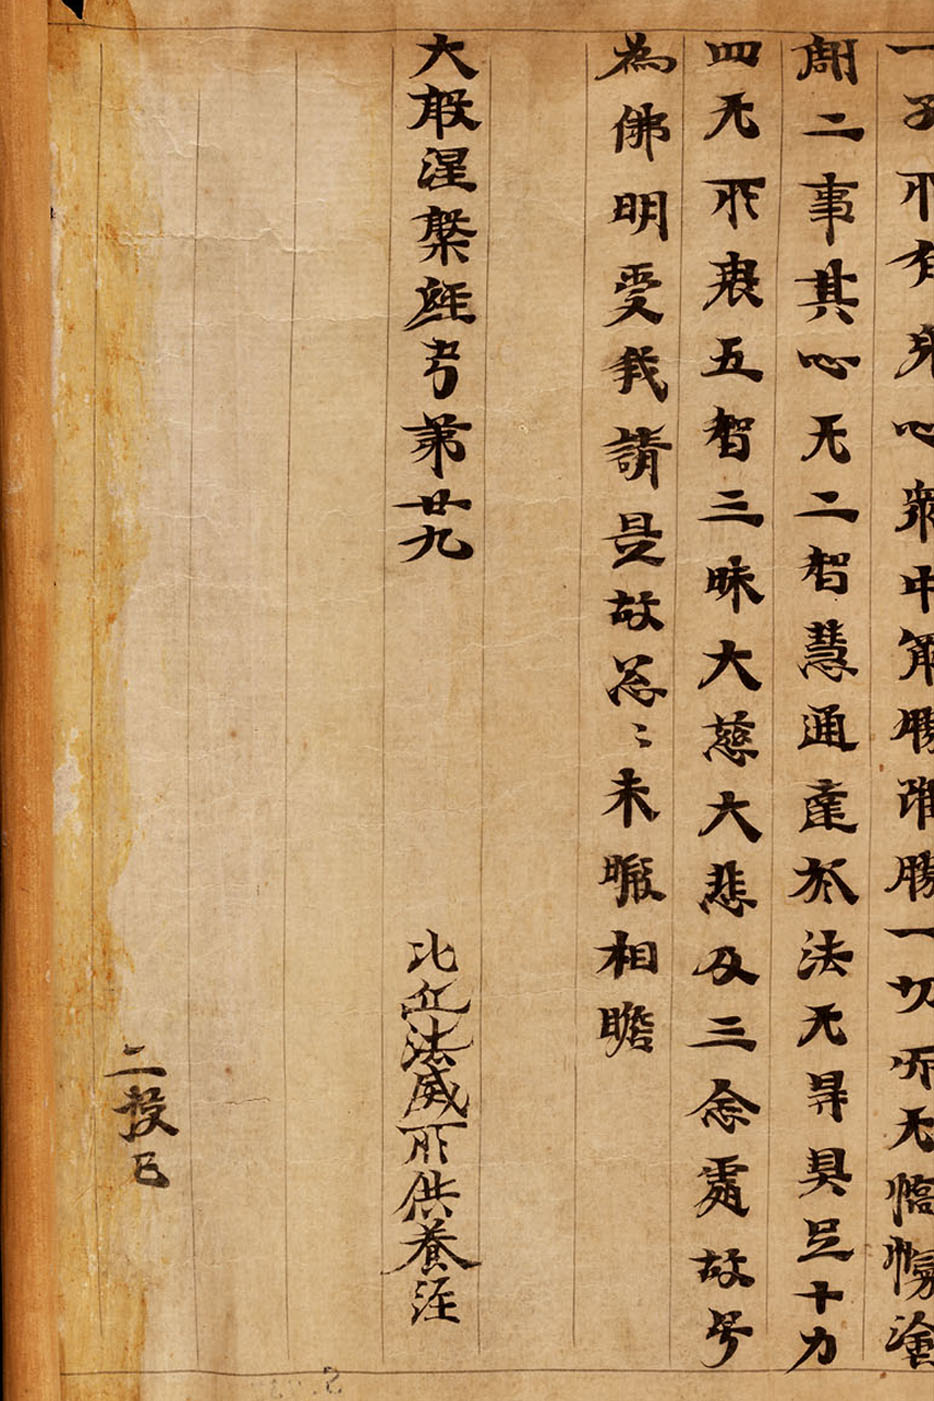 一子所有心衆中解勝唯勝一切所无
二事其心无二智慧通達於法无㝵具足十力
四无所畏五智三昧大慈大悲及三念處故号
為佛明受我請是故忩〻未暇相瞻
大般涅槃經卷第廿九
比丘法威所供養經
二校已